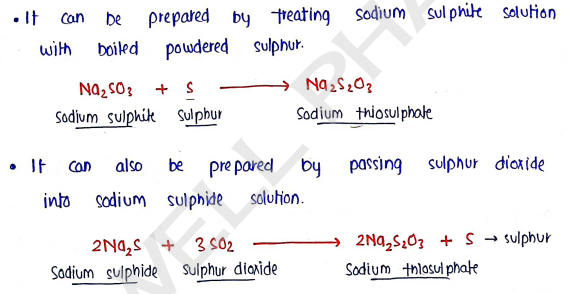 • It can be prepared by treating sodium sulphite solution
with boiled powdered sulphur.
Na₂SO₃ + S → Na₂S₂O₃
Sodium sulphite Sulphur Sodium thiosulphate
• It can also be prepared by passing sulphur dioxide
into sodium sulphide solution.
2Na₂S + 3SO₂ → 2Na₂S₂O₃ + S → sulphur
Sodium sulphide Sulphur dioxide Sodium thiosulphate
WELL PHA